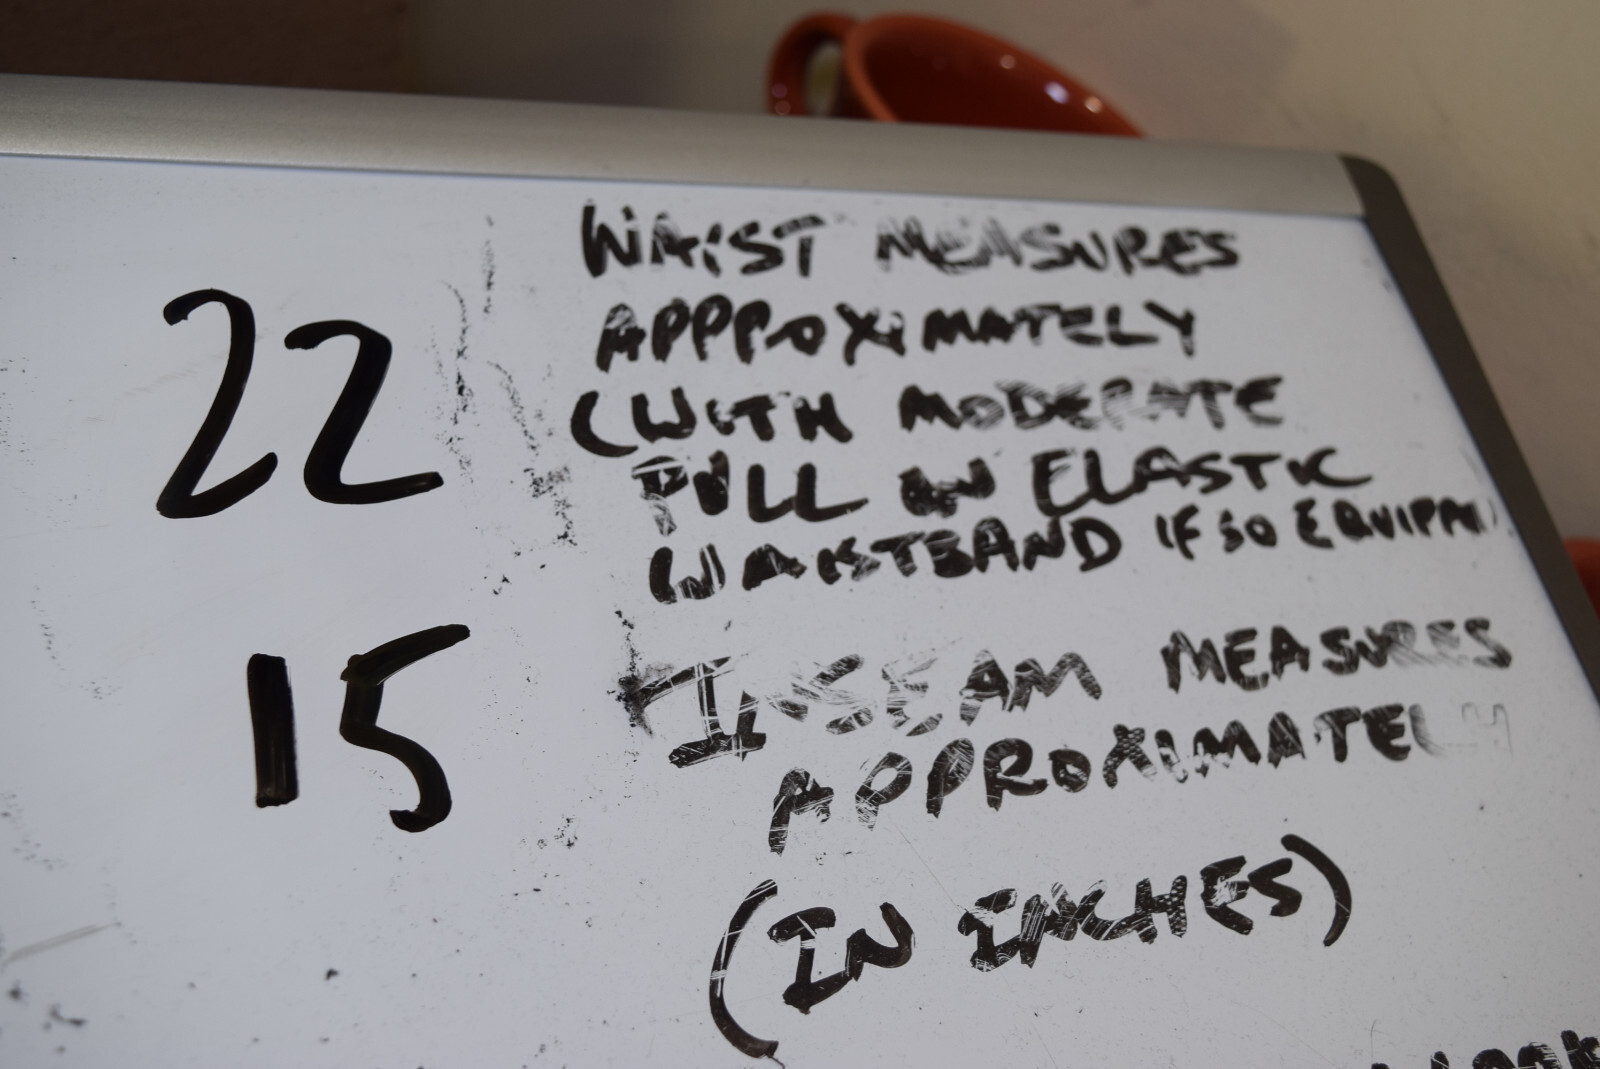 22
WAIST MEASURES
APPPOXIMATELY
(WITH MODERATE
PULL ON ELASTIC
WAISTBAND IF SO EQUIPPE
15
INSEAM MEASURES
APPROXIMATELY
(IN INCHES)